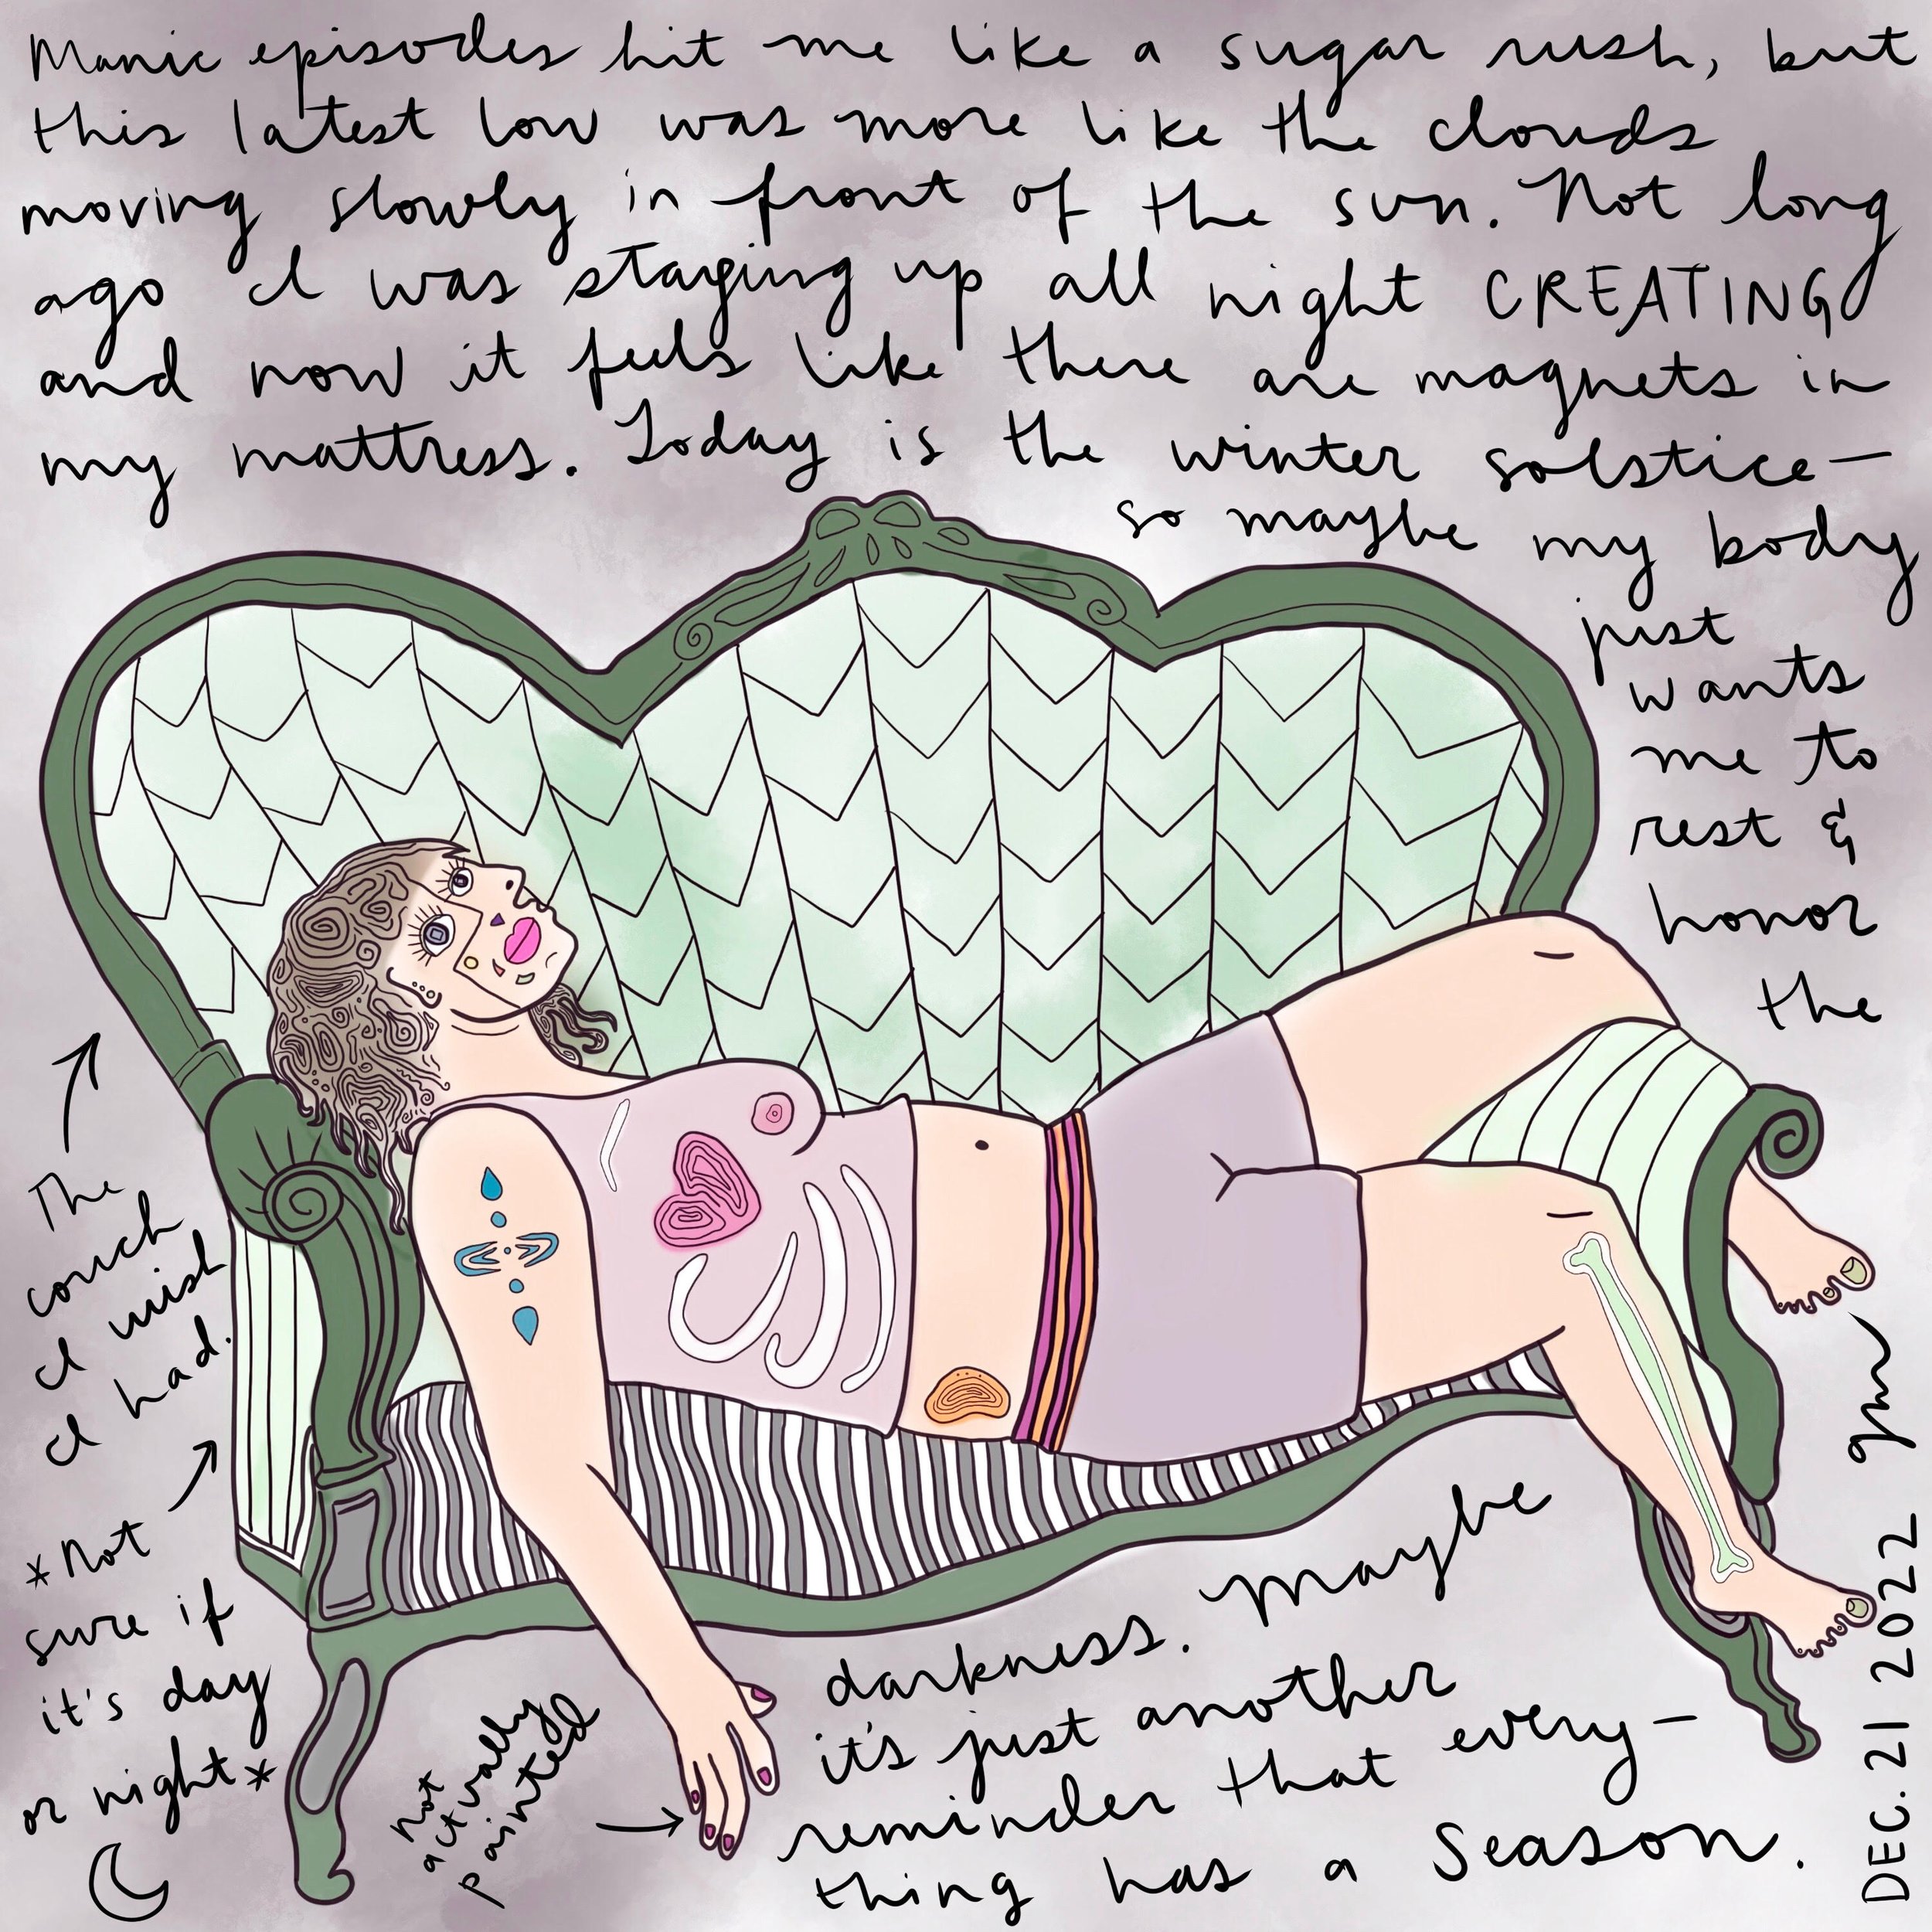 Manic episodes hit me like a sugar rush, but
this latest low was more like the clouds
moving slowly in front of the sun. Not long
ago I was staying up all night CREATING
and now it feels like there are magnets in
my mattress. Today is the winter solstice—
so maybe my body
just
wants
me to
rest &
honor
the
darkness. Maybe
it's just another
reminder that every-
thing has a season.
The
couch
I wish
I had.
*Not
sure if
it's day
or night*
not
actually
painted
DEC. 21 2022